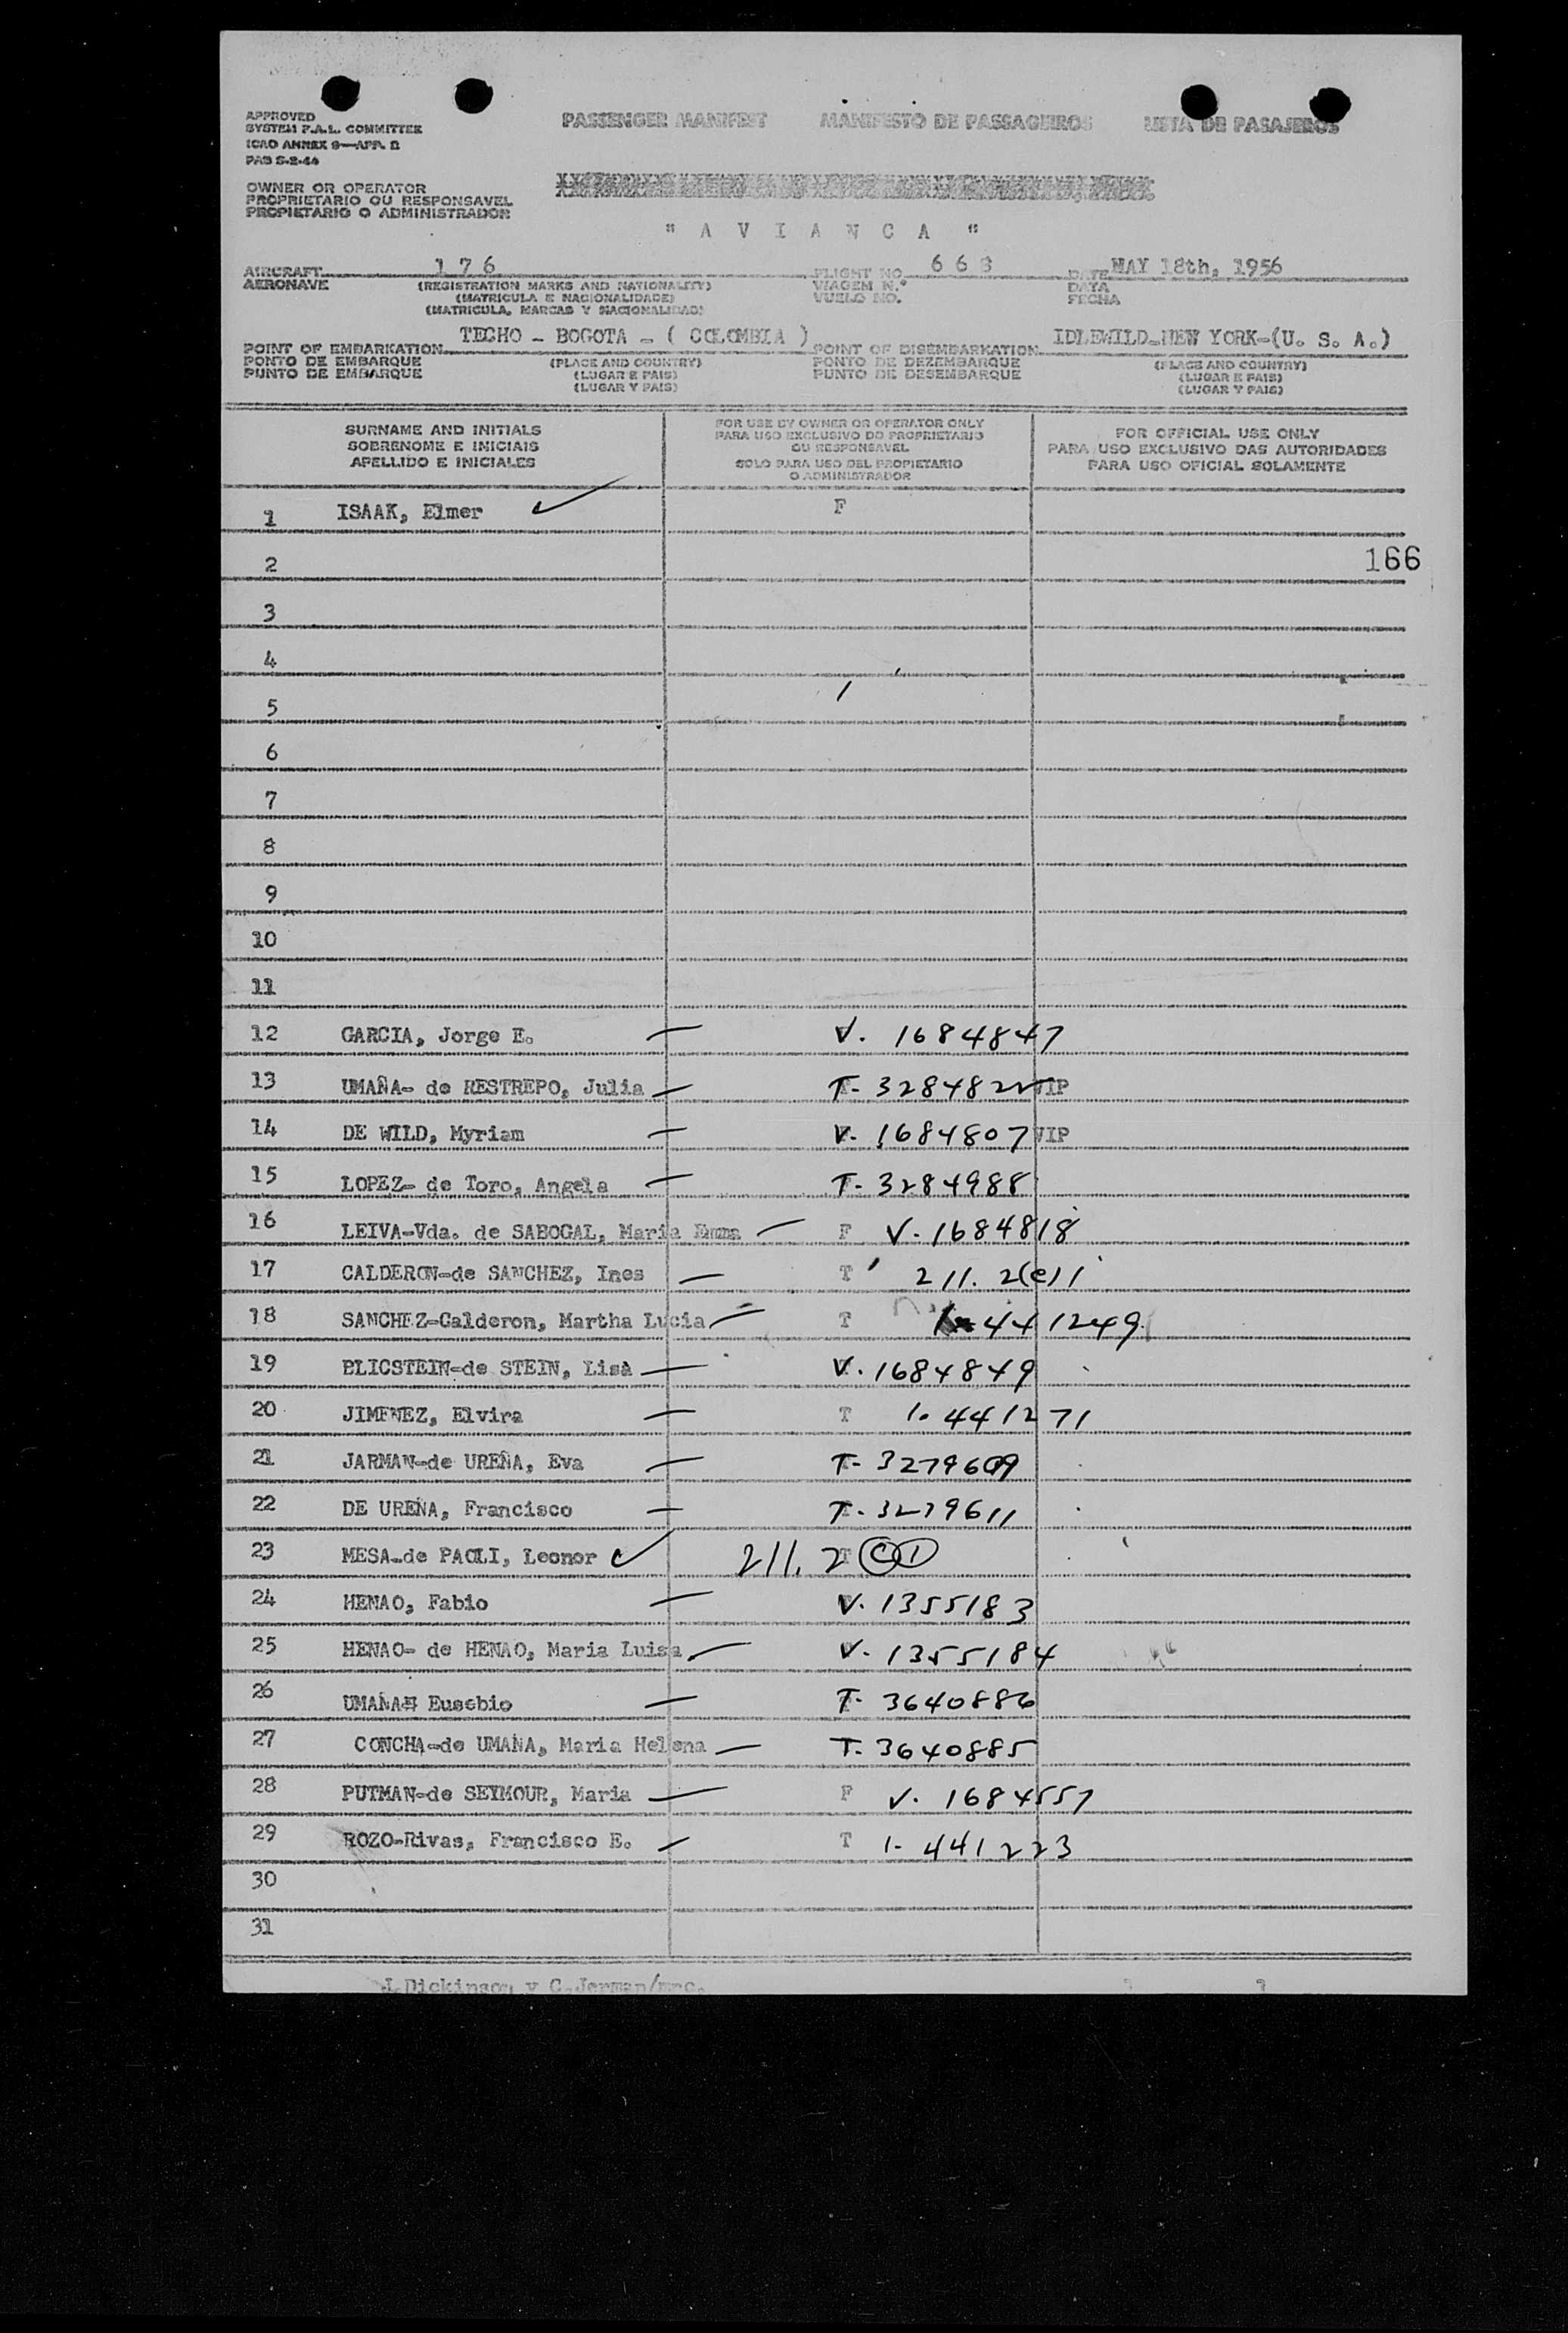 APPROVED
SYSTEM F.A.L. COMMITTEE
ICAO ANNEX 9—APP. D
PAB S-2-44
PASSENGER MANIFEST MANIFESTO DE PASSAGEIROS LISTA DE PASAJEROS
OWNER OR OPERATOR
PROPRIETARIO OU RESPONSAVEL
PROPIETARIO O ADMINISTRADOR
" A V I A N C A "
AIRCRAFT 1 7 6 FLIGHT NO. 6 6 8 DATE MAY 18th, 1956
AERONAVE (REGISTRATION MARKS AND NATIONALITY) VIAGEM N.º DATA
(MATRICULA E NACIONALIDADE) VUELO NO. FECHA
(MATRICULA, MARCAS Y NACIONALIDAD)
POINT OF EMBARKATION TECHO - BOGOTA - ( COLOMBIA ) POINT OF DISEMBARKATION IDLEWILD-NEW YORK-(U. S. A.)
PONTO DE EMBARQUE (PLACE AND COUNTRY) PONTO DE DEZEMBARQUE (PLACE AND COUNTRY)
PUNTO DE EMBARQUE (LUGAR E PAIS) PUNTO DE DESEMBARQUE (LUGAR E PAIS)
(LUGAR Y PAIS) (LUGAR Y PAIS)
SURNAME AND INITIALS
SOBRENOME E INICIAIS
APELLIDO E INICIALES
FOR USE BY OWNER OR OPERATOR ONLY
PARA USO EXCLUSIVO DO PROPRIETARIO
OU RESPONSAVEL
SOLO PARA USO DEL PROPIETARIO
O ADMINISTRADOR
FOR OFFICIAL USE ONLY
PARA USO EXCLUSIVO DAS AUTORIDADES
PARA USO OFICIAL SOLAMENTE
1 ISAAK, Elmer F
2 166
3
4
5
6
7
8
9
10
11
12 GARCIA, Jorge E. V. 1684847
13 UMAÑA- de RESTREPO, Julia T- 3284822 VIP
14 DE WILD, Myriam V- 1684807 VIP
15 LOPEZ- de Toro, Angela T- 3284988
16 LEIVA-Vda. de SABOGAL, Maria Emma F V- 1684818
17 CALDERON-de SANCHEZ, Ines T 211. 2(e)1
18 SANCHEZ-Calderon, Martha Lucia T 1- 441249
19 BLICSTEIN-de STEIN, Lisa V. 1684849
20 JIMENEZ, Elvira T 1. 441271
21 JARMAN-de UREÑA, Eva T- 3279609
22 DE UREÑA, Francisco T- 3279611
23 MESA-de PAOLI, Leonor 211. 2 T
24 HENAO, Fabio V. 1355183
25 HENAO- de HENAO, Maria Luisa V- 1355184
26 UMAÑA Eusebio T- 3640886
27 CONCHA-de UMAÑA, Maria Helena T- 3640885
28 PUTMAN-de SEYMOUR, Maria F V. 1684557
29 ROZO-Rivas, Francisco E. T 1- 441223
30
31
J. Dickinson y C. Jarman/mrc.